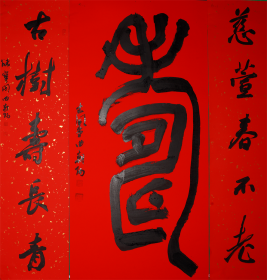 慈萱春不老
壽
古樹壽長青